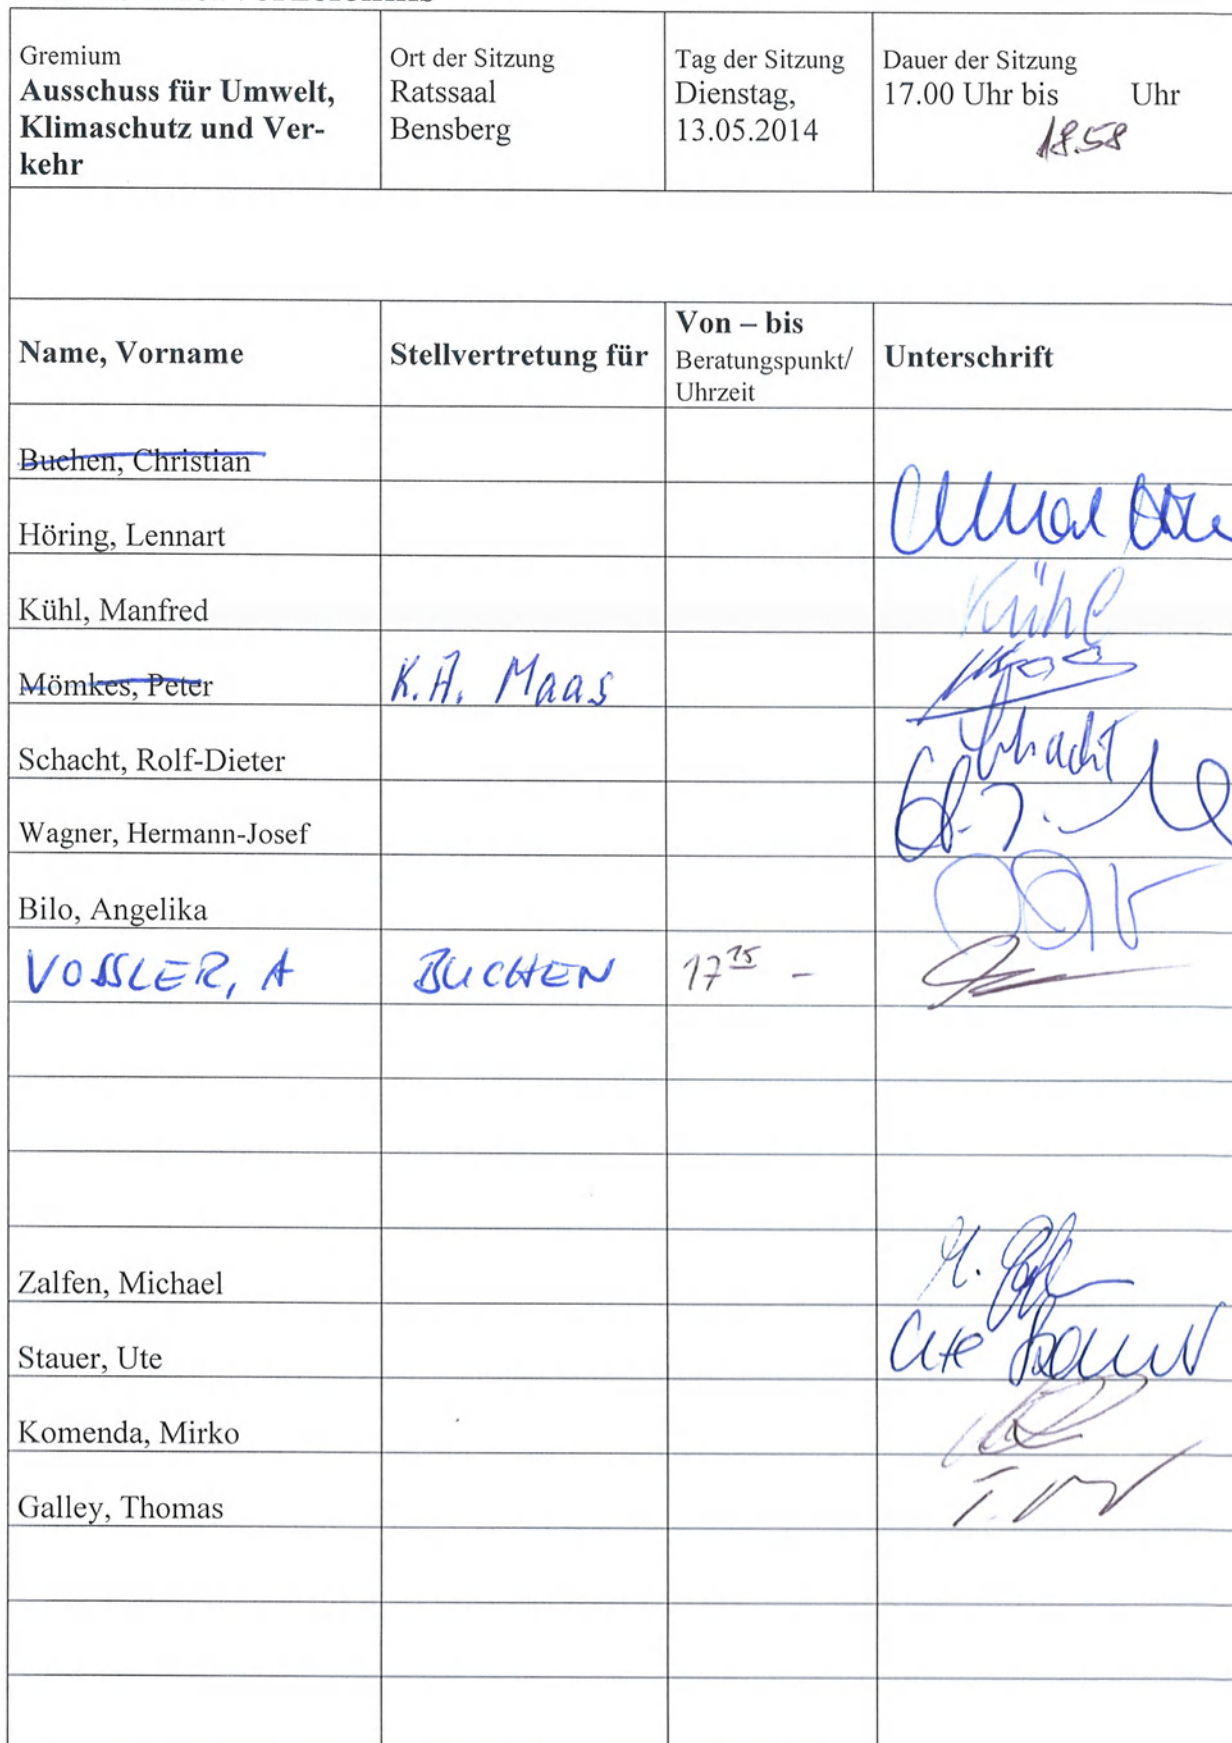 Gremium
Ausschuss für Umwelt,
Klimaschutz und Ver-
kehr
Ort der Sitzung
Ratssaal
Bensberg
Tag der Sitzung
Dienstag,
13.05.2014
Dauer der Sitzung
17.00 Uhr bis Uhr
18.58
Name, Vorname
Stellvertretung für
Von – bis
Beratungspunkt/
Uhrzeit
Unterschrift
Buchen, Christian
Höring, Lennart
Kühl, Manfred Kühl
Mömkes, Peter K.A. Maas
Schacht, Rolf-Dieter Schacht
Wagner, Hermann-Josef
Bilo, Angelika
VOSSLER, A BUCHEN 17 15 -
Zalfen, Michael
Stauer, Ute Ute Stauer
Komenda, Mirko
Galley, Thomas